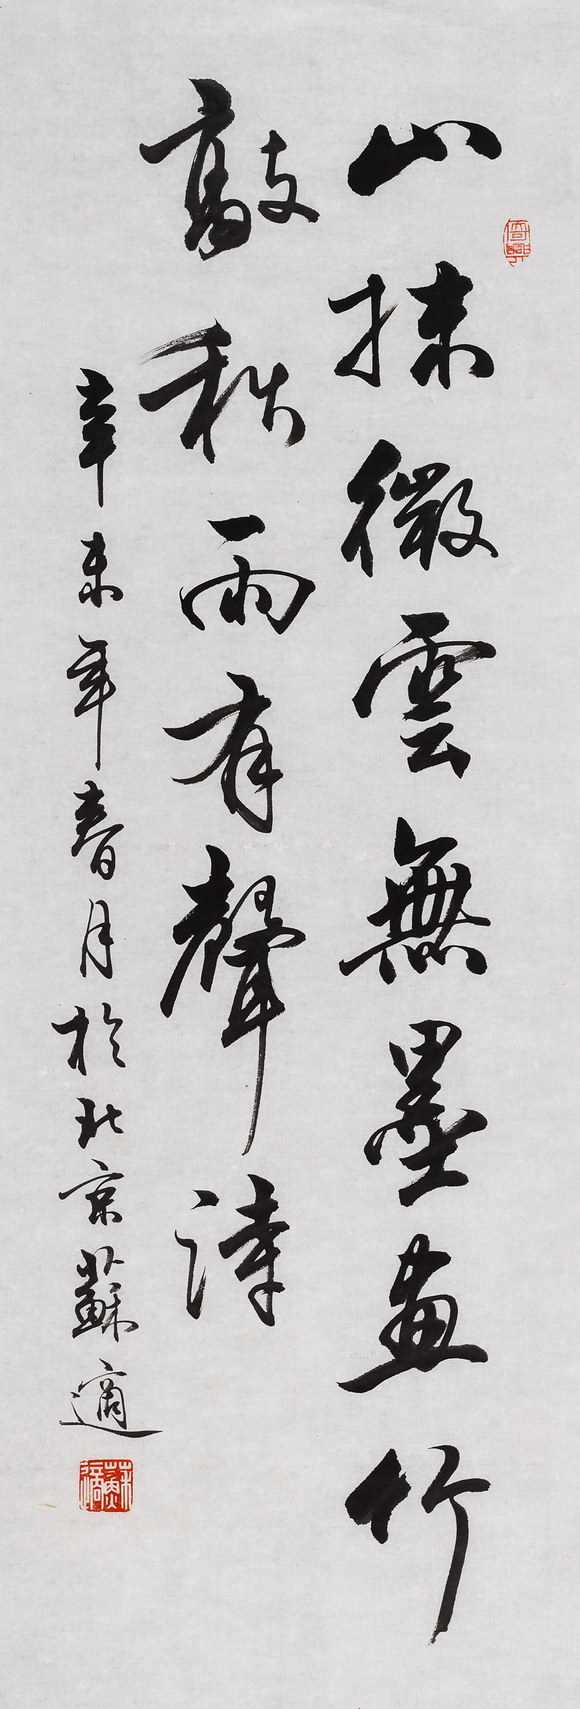 山抹微雲無墨畫竹
敲秋雨有聲詩
辛未年春月於北京蘇適
蘇適